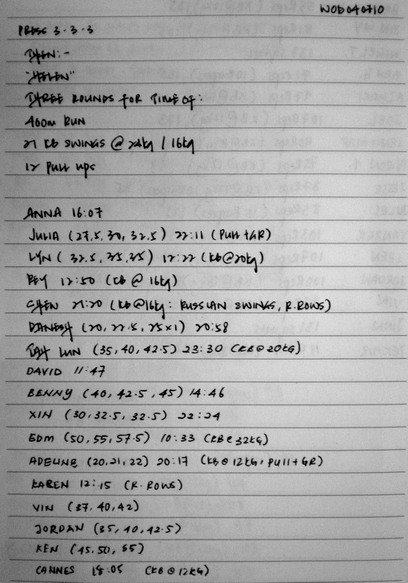 WOD 040710
PRESS 3-3-3
THEN:-
"HELEN"
THREE ROUNDS FOR TIME OF:
400m RUN
21 KB SWINGS @ 24kg / 16kg
12 PULL UPS
ANNA 16:07
JULIA (27.5, 30, 32.5) 22:11 (PULL+GR)
LYN (32.5, 35, 35) 17:22 (KB@20kg)
BEY 12:50 (KB @ 16kg)
SHEN 21:20 (KB@16kg: RUSSIAN SWINGS, R.ROWS)
DANESH (20, 22.5, 25x1) 20:58
TAH LUN (35, 40, 42.5) 23:30 (KB@20KG)
DAVID 11:47
BENNY (40, 42.5, 45) 14:46
XIN (30, 32.5, 32.5) 22:24
EDM (50, 55, 57.5) 10:33 (KB@32KG)
ADELINE (20, 21, 22) 20:17 (KB@12KG, PULL+GR)
KAREN 12:15 (R.ROWS)
VIN (37, 40, 42)
JORDAN (35, 40, 42.5)
KEN (45, 50, 55)
CANNES 18:05 (KB@12KG)